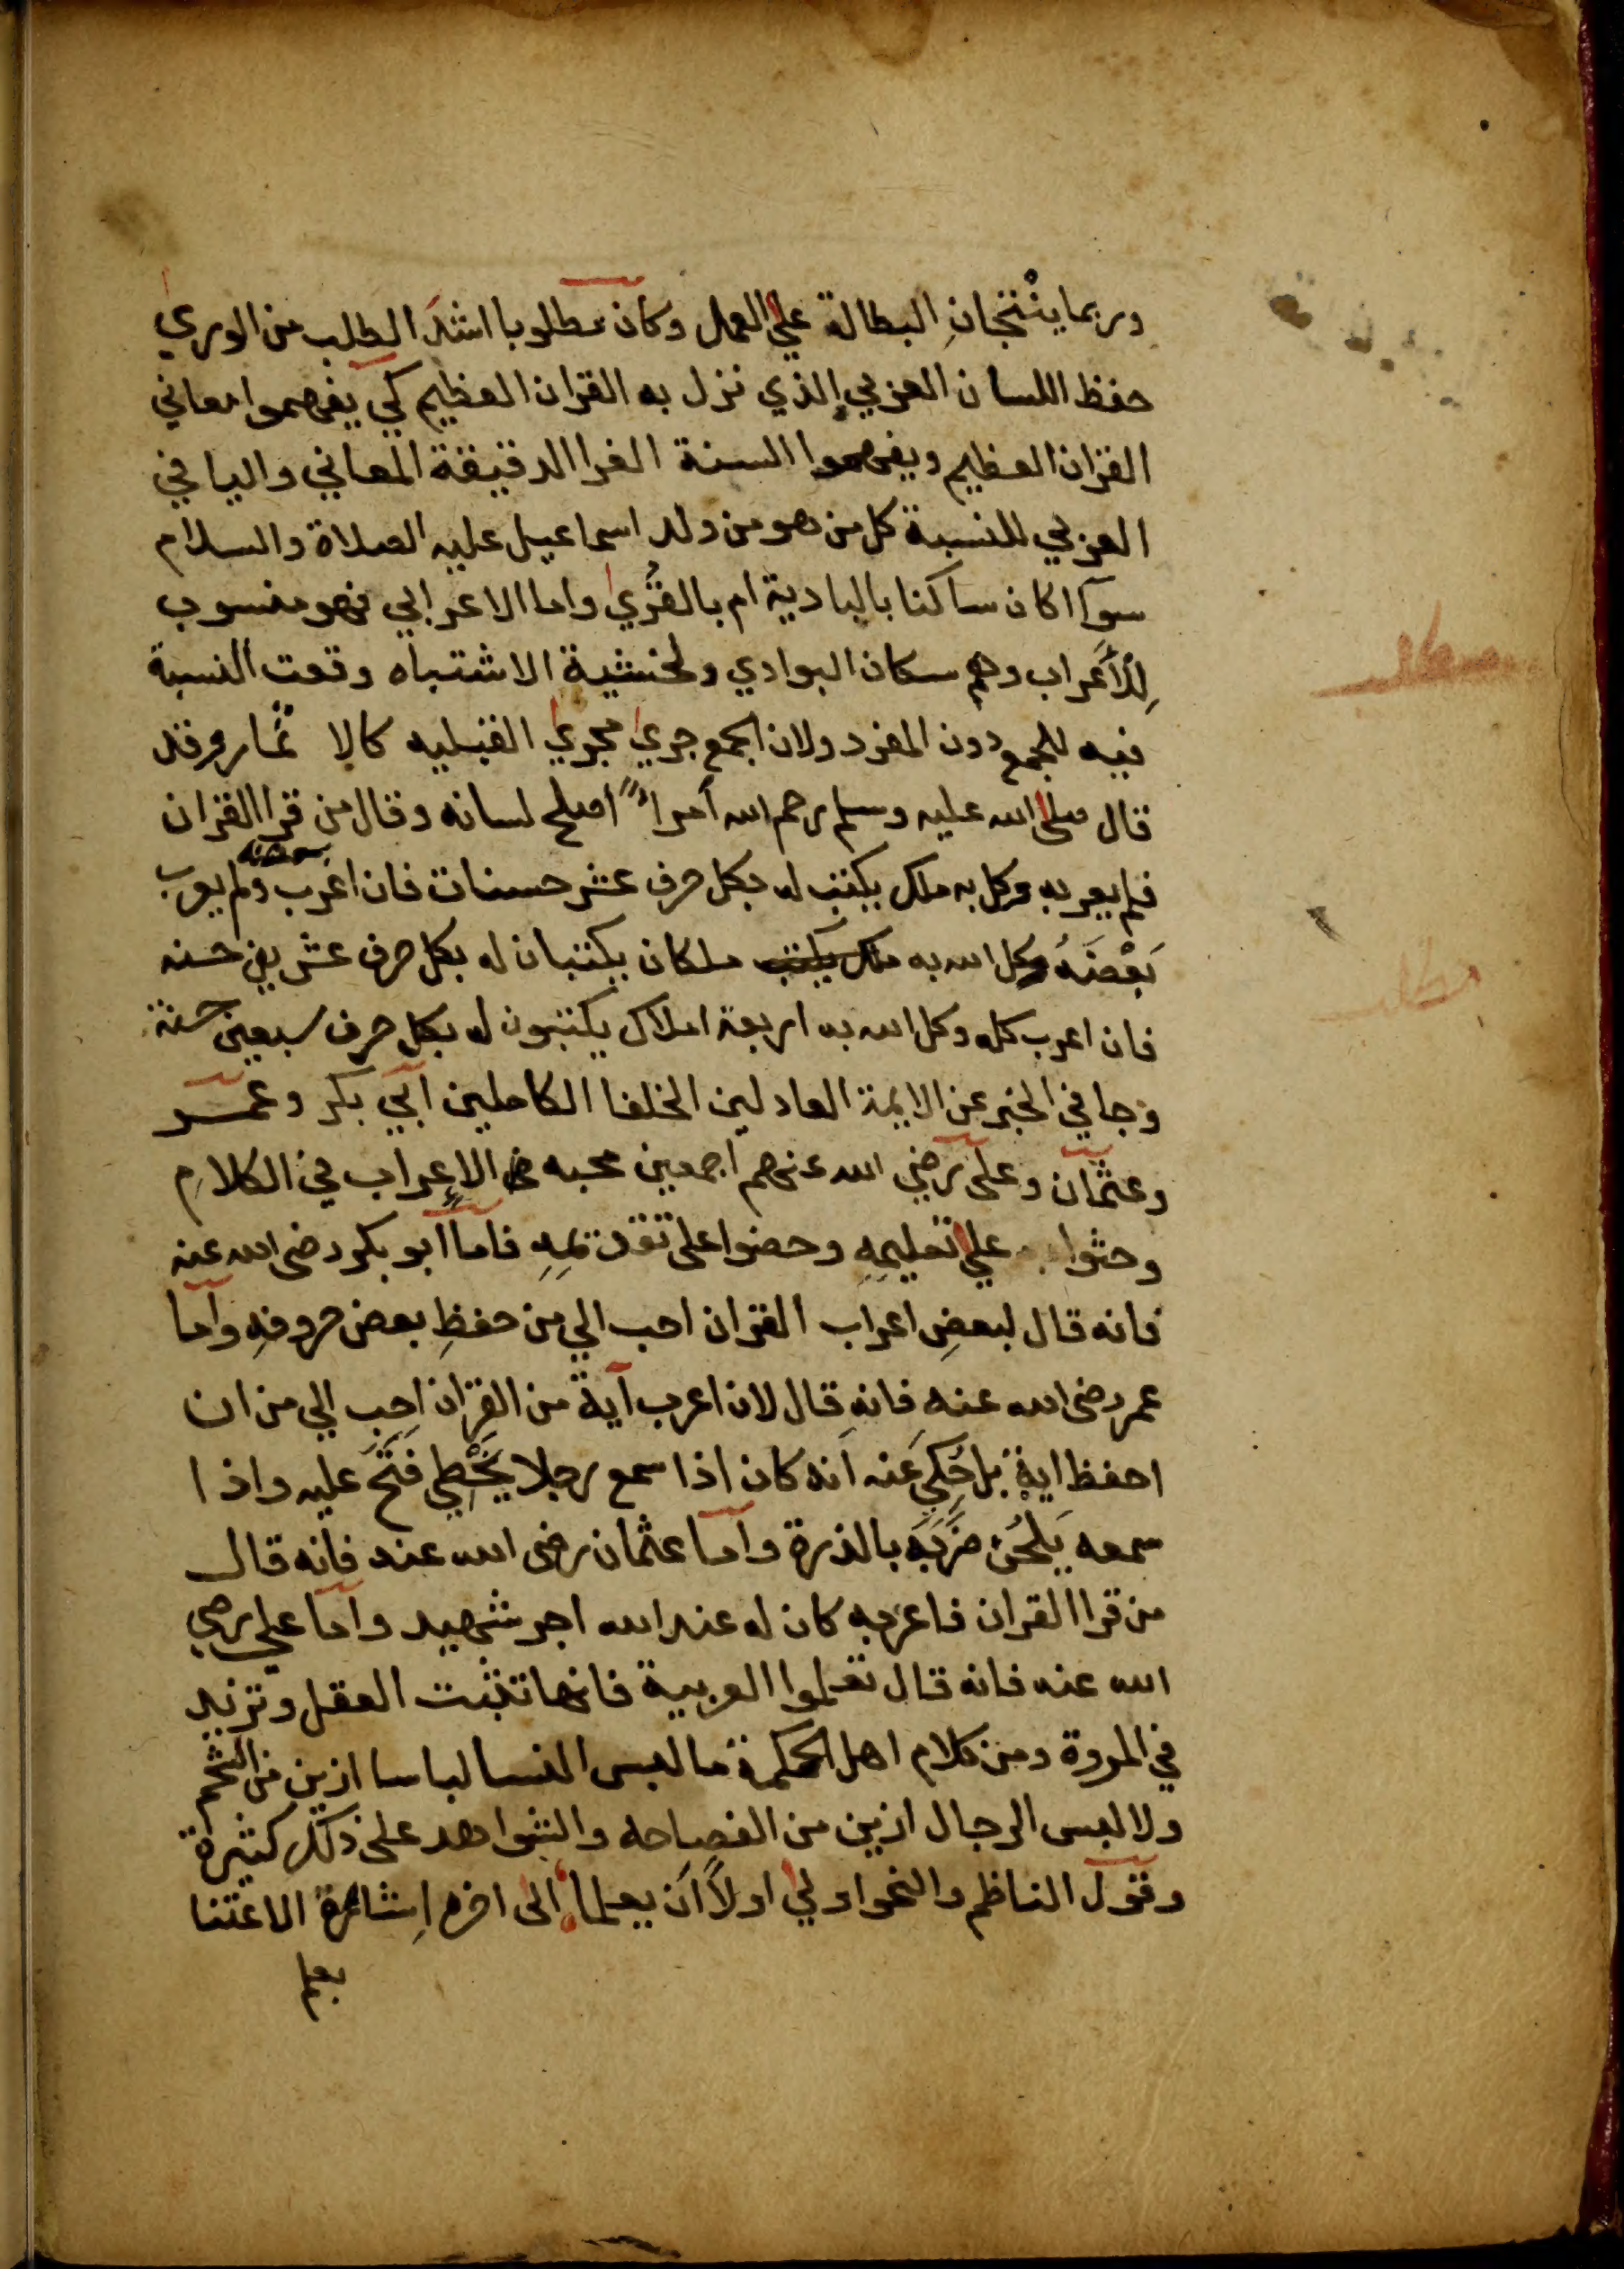 وربما ينْتجانِ البطالة علي العمل وكان مطلوبا اشدَ الطلب من الوري
حفظ اللسان العربي الذي نزل به القران العظيم كي يفهموا معاني
القران العظيم ويفهموا السنة الغرا الدقيقة المعاني واليا في
العربي للنسبة كل من هو من ولد اسماعيل عليه الصلاة والسلام
سوآ اكان ساكنا بالبادية ام بالقُري واما الاعرابي فهو منسوب
لِلْأَعراب وهم سكان البوادي ولخشية الاشتباه وقعت النسبة
فيه للجمع دون المفرد ولان الجمع جري مجري القبليه كالا نمار وقد
قال صلي الله عليه وسلم رحم الله أمراً اصلح لسانه وقال من قرا القران
فلم يعربه وكل به ملك يكتب له بكل حرف عشر حسنات فان اعرب بعضه ولم يعرب
بَعْضَهُ وكل الله به ملك يكتب ملكان يكتبان له بكل حرف عشرين حسنه
فان اعرب كله وكل الله به اربعة املاك يكتبون له بكل حرف سبعين حسنة
وجا في الخبر عن الايمة العادلين الخلفا الكاملين ابي بكر وعمر
وعثمان وعلى رضي الله عنهم اجمعين محبه الإعراب في الكلامِ
وحثوا علي تعليمِهِ وحضوا على تقديمِهِ فاما ابو بكر رضى الله عنه
فانه قال لبعضِ اعراب القران احب الي من حفظِ بعض حروفهِ واما
عمر رضى الله عنه فانه قال لان اعرب آية من القران احب الي من ان
احفظ اية بل حُكِيَ عنه انه كان اذا سمع رجلا يخْطِي فَتَحَ عليه واذا
سمعه يَلحُن ضَرَبَهَ بالدرة واما عثمان رضى الله عنه فانه قال
من قرا القران فاعربه كان له عند الله اجر شهيد واما علي رضي
الله عنه فانه قال تعلموا العربية فانها تثبت العقل وتزيد
في المروة ومن كلام اهل الحكمة ما لبس النسا لباسا ازين من الشحم
ولا لبس الرجال ازين من الفصاحه والشواهد على ذلك كثيرة
وقول الناظم والنحو اولي اولاً أن يعلما الى اخره اِشارة الاعتنا
بعلم
مطلب
مطلب